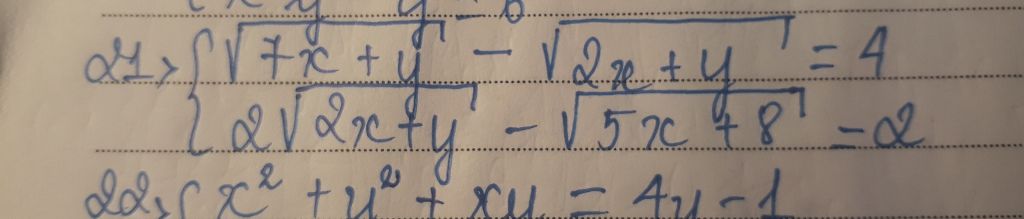 21> { √7x + y - √2x + y = 4
2√2x+y - √5x + 8 = 2
22> { x² + y² + xy = 4y - 1